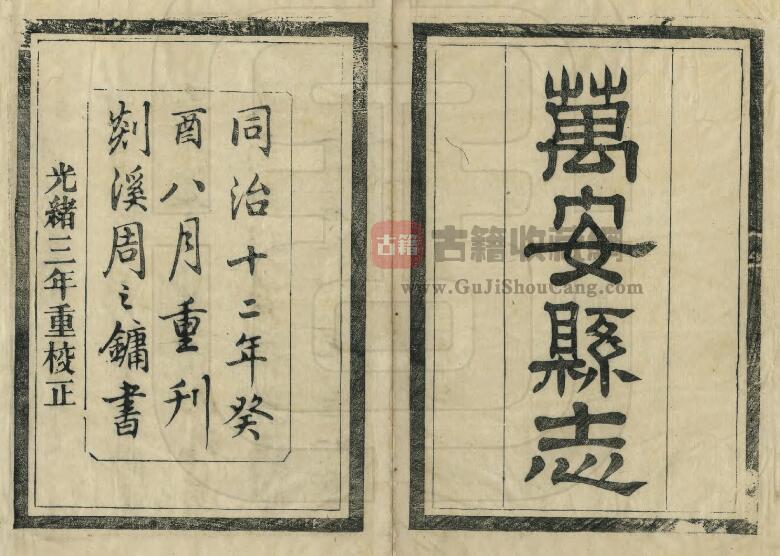 萬安縣志
同治十二年癸
酉八月重刋
剡溪周之鏞書
光緒三年重校正
古籍
古籍收藏網
www.GuJiShouCang.com